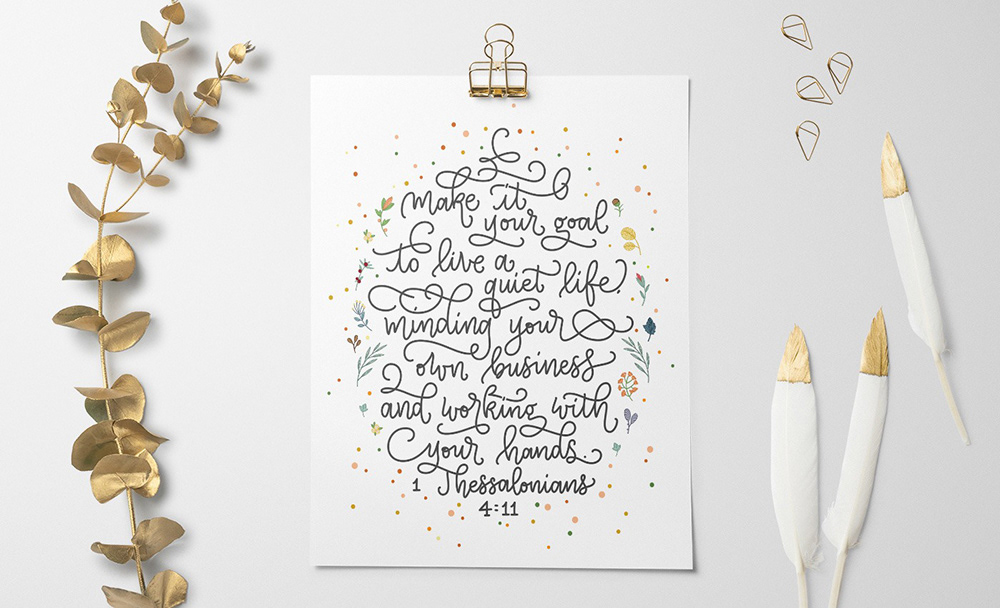 make it
your goal
to live a
quiet life,
minding your
own business
and working with
your hands.
1 Thessalonians
4:11